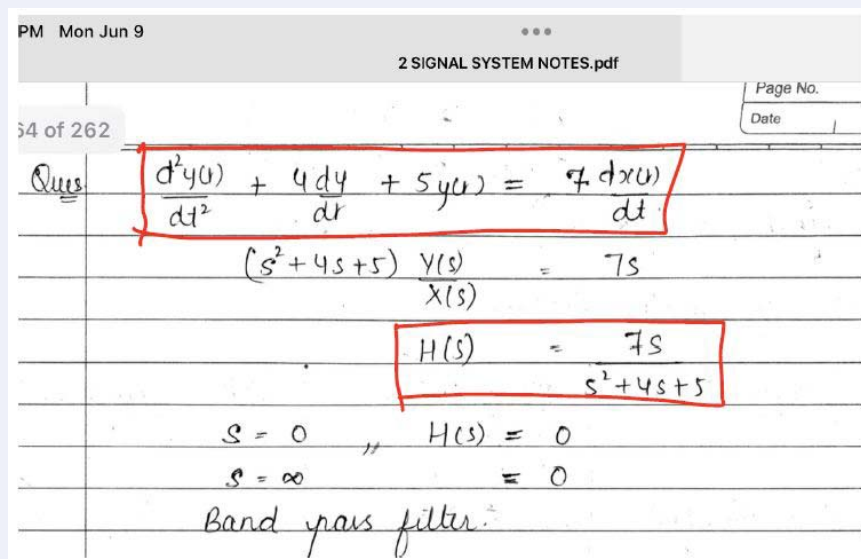 PM Mon Jun 9
2 SIGNAL SYSTEM NOTES.pdf
Page No.
Date
64 of 262
Ques d²y(t)/dt² + 4dy/dt + 5y(t) = 7 dx(t)/dt
(s²+4s+5) Y(s)/X(s) = 7s
H(s) = 7s/s²+4s+5
S = 0 ,, H(s) = 0
S = ∞ = 0
Band pass filter.